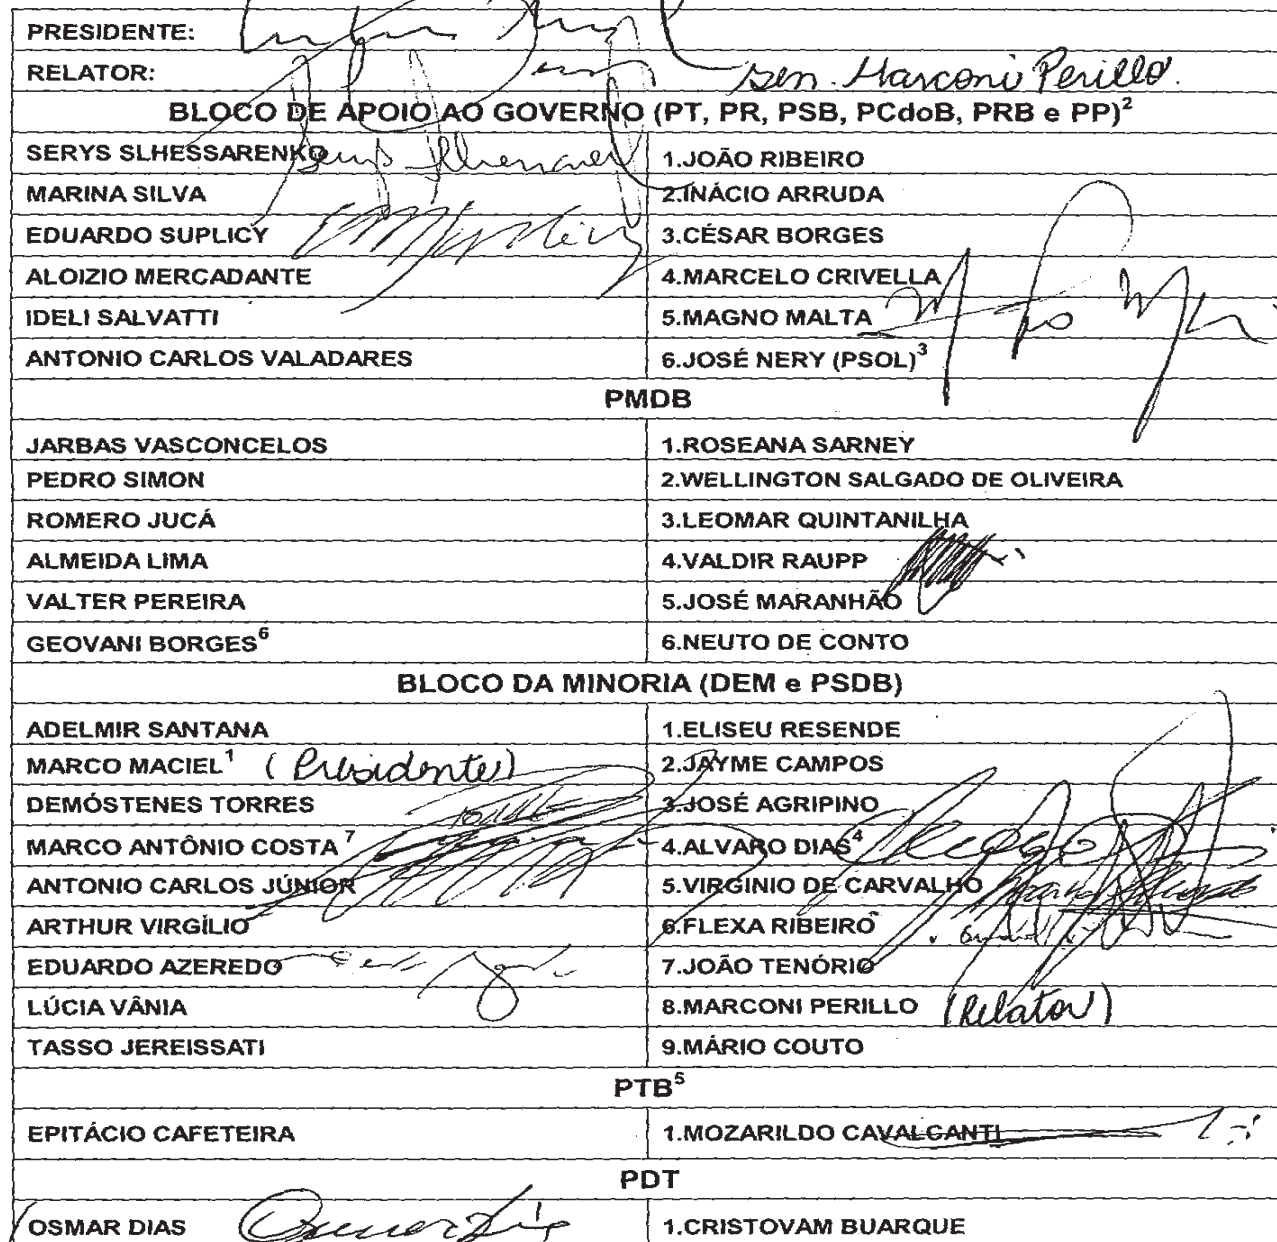 PRESIDENTE:
RELATOR: Sen. Marconi Perillo.
BLOCO DE APOIO AO GOVERNO (PT, PR, PSB, PCdoB, PRB e PP)²
SERYS SLHESSARENKO 1.JOÃO RIBEIRO
MARINA SILVA 2.INÁCIO ARRUDA
EDUARDO SUPLICY 3.CÉSAR BORGES
ALOIZIO MERCADANTE 4.MARCELO CRIVELLA
IDELI SALVATTI 5.MAGNO MALTA
ANTONIO CARLOS VALADARES 6.JOSÉ NERY (PSOL)³
PMDB
JARBAS VASCONCELOS 1.ROSEANA SARNEY
PEDRO SIMON 2.WELLINGTON SALGADO DE OLIVEIRA
ROMERO JUCÁ 3.LEOMAR QUINTANILHA
ALMEIDA LIMA 4.VALDIR RAUPP
VALTER PEREIRA 5.JOSÉ MARANHÃO
GEOVANI BORGES⁶ 6.NEUTO DE CONTO
BLOCO DA MINORIA (DEM e PSDB)
ADELMIR SANTANA 1.ELISEU RESENDE
MARCO MACIEL¹ (Presidente) 2.JAYME CAMPOS
DEMÓSTENES TORRES 3.JOSÉ AGRIPINO
MARCO ANTÔNIO COSTA⁷ 4.ALVARO DIAS⁴
ANTONIO CARLOS JÚNIOR 5.VIRGINIO DE CARVALHO
ARTHUR VIRGÍLIO 6.FLEXA RIBEIRO
EDUARDO AZEREDO 7.JOÃO TENÓRIO
LÚCIA VÂNIA 8.MARCONI PERILLO (Relator)
TASSO JEREISSATI 9.MÁRIO COUTO
PTB⁵
EPITÁCIO CAFETEIRA 1.MOZARILDO CAVALCANTI
PDT
OSMAR DIAS Osmar Dias 1.CRISTOVAM BUARQUE